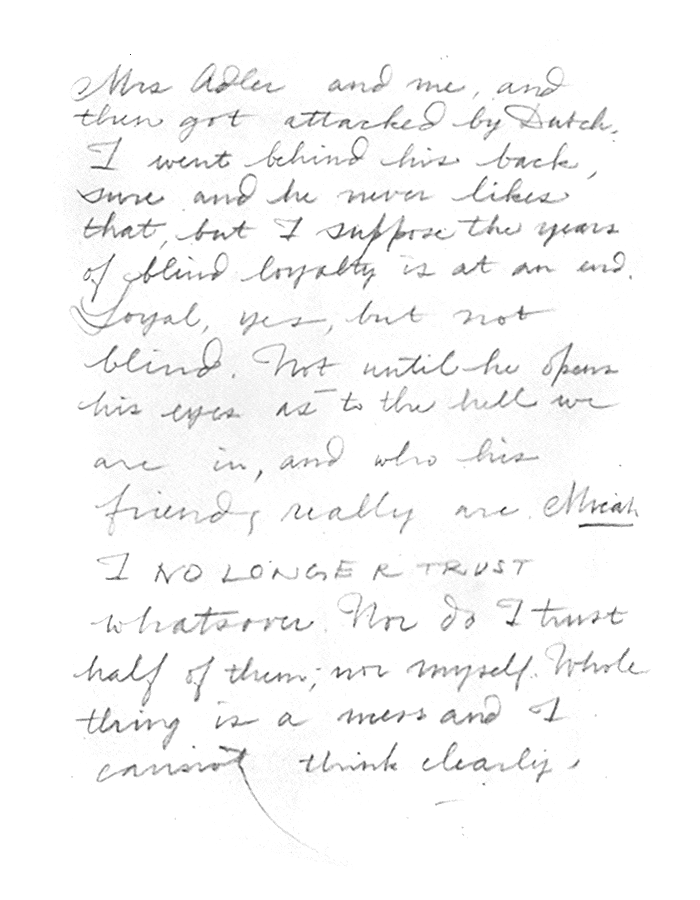 Mrs Adler and me, and
then got attacked by Dutch.
I went behind his back,
sure and he never likes
that, but I suppose the years
of blind loyalty is at an end.
Loyal, yes, but not
blind. Not until he opens
his eyes as to the hell we
are in, and who his
friends really are. Micah
I NO LONGER TRUST
whatsover. Nor do I trust
half of them; nor myself. Whole
thing is a mess and I
cannot think clearly.